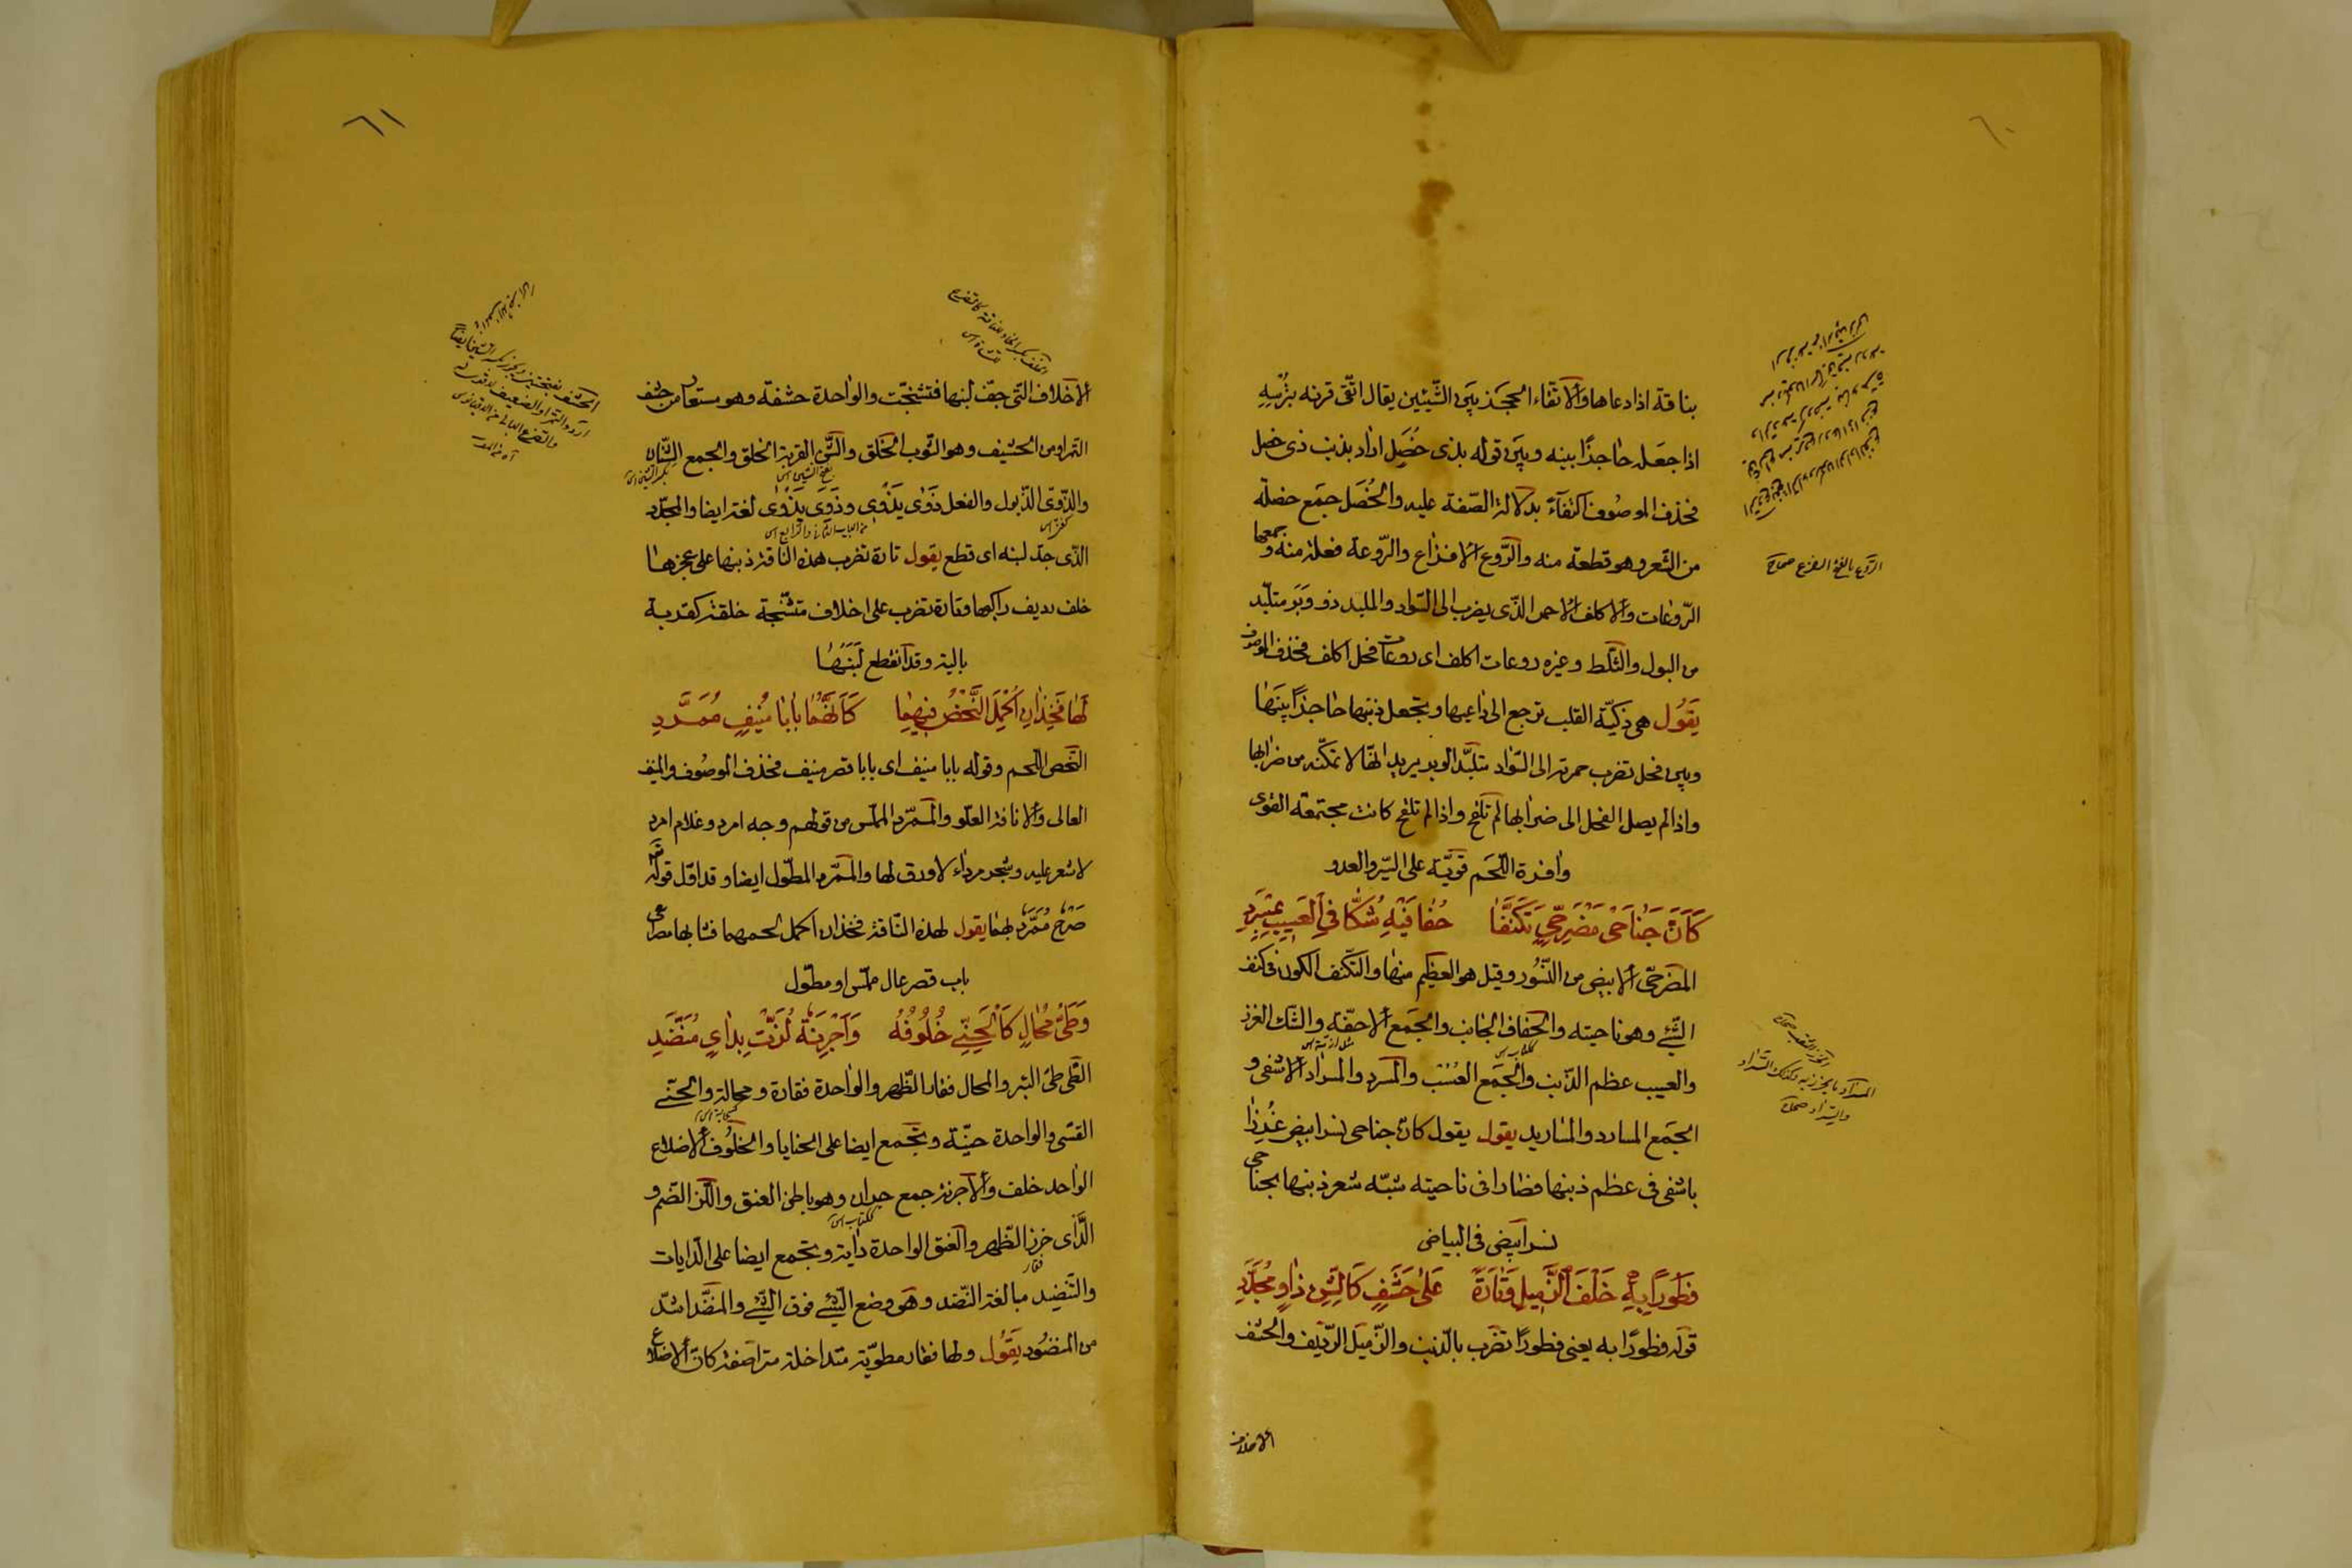 ٦٠
بناقة اذا دعاها والاتقاء الحجز بين الشيئين يقال اتّقى قرنه بترسه
اذا جعله حاجزًا بينه وبين قوله بذى خُصَل اراد بذنب ذى خصل
فحذف الموصوف اكتفآءً بدلالة الصّفة عليه والخُصَل جمع خصلة
من الشعر وهو قطعة منه والرَّوع الافزاع والرّوعة فعلة منه وجمعها
الرّوعات والاكلف الاحمر الذّى يضرب الى السّواد والملبد ذو وَبَر متلبّد
من البول والثلط وغيره روعات اكلف اى روعات فحل اكلف فحذف الموصوف
يَقوُل هى ذكيّة القلب ترجع الى داعيها وتجعل ذنبها حاجزًا بينها
وبين فحل تضرب حمرته الى السّواد متلبّد الوبر يريد انّها لا تمكّنه من ضرابها
واذا لم يصل الفحل الى ضرابها لم تلقح واذا لم تلقح كانت مجتمعة القوى
وافرة اللّحم قويّة على السّير والعدو
كَأنَّ جَناحَى مَضرَحِىّ تَكَنَّفا حُفافَيْهِ شُكّا فى العَسيبِ بِمسرَدِ
المضرحىّ الابيض من النّسُور وقيل هو العظيم منها والتكنّف الكون فى كنف
الشّئ وهو ناحيته والحفاف الجانب والجمع الاحفّة والشّك الغرز
والعسيب عظم الذّنب والجمع العُسُب والمسرد والمسراد الاشفى و
الجمع المسارد والمساريد يقول يقول كانّ جناحى نسر ابيض غُرِزا
باشفى فى عظم ذنبها فصارا فى ناحيته شبّه شعر ذنبها بجناحى
نسر ابيض فى البياض
فَطَورًا بِهِ خَلْفَ الزَّميلِ وَتارَةً عَلى حَشَفٍ كَالشَّنِّ ذاوٍ مُجَدَّدِ
قوله فطورًا به يعنى فطورًا تضرب بالذّنب والزّميل الرّديف والحشف
الاخلاف
الرَّوع بالفتح الفزع صحاح
المسرَد ما يخرز به وكذلك السّراد
٦١
الاخلاف التى جفّ لبنها فتشنّجت والواحدة حشفة وهو مستعار من حشف
التمر او من الحشيف وهو الثّوب الخلق والشنّ القربة الخلق والجمع الشّنان
والذّوىّ الذّبول والفعل ذَوى يَذْوِى وذَوِىَ يَذْوى لغة ايضا والمجدّد
الذّى جدّ لبنه اى قطع يقول تارة تضرب هذه الناقة ذنبها على عجزها
خلف رديف راكبها وتارة تضرب على اخلاف متشنّجة خلقة كقربة
بالية وقد انقطع لَبَنُها
لَها فَخِذانِ اُكْمِلَ النَّحْضُ فيهِما كَأنَّهُما بابا مُنيفٍ مُمَرَّدِ
النّحض اللّحم وقوله بابا منيف اى بابا قصر منيف فحذف الموصوف والمنيف
العالى والانافة العلّو والممرّد المملّس من قولهم وجه امرد وغلام امرد
لا شعر عليه وشجر مرداء لا ورق لها والممرّد المطوّل ايضا وقد اوّل قوله
صَرْحٌ مُمَرَّدٌ بهما يقول لهذه النّاقة فخذان اكمل لحمهما فشابها مصراعى
باب قصر عال مملّس او مطوّل
وَطَىُّ مُحالٍ كَالْحَنِىِّ خُلُوفُهُ وَاَجْرِنَةٌ لُزَّتْ بِدَاىٍ مُنَضَّدِ
الطّىّ طىّ البئر والمحال فقار الظّهر والواحدة فقارة ومحالة والحنّى
القسّى والواحدة حنيّة وتجمع ايضا على الحنايا والخلوف الاضلاع
الواحد خلف والاجرنة جمع جران وهو باطن العنق واللّز الضّم و
الدّاى خرز الظّهر والعنق الواحدة داية وتجمع ايضا على الدّايات
والتنضيد مبالغة النّضد وهو وضع الشّئ فوق الشّئ والمنضّد اشدّ
من المنضُود يَقوُل ولها فقار مطويّة متداخلة متراصفة كانّ الاضلاع